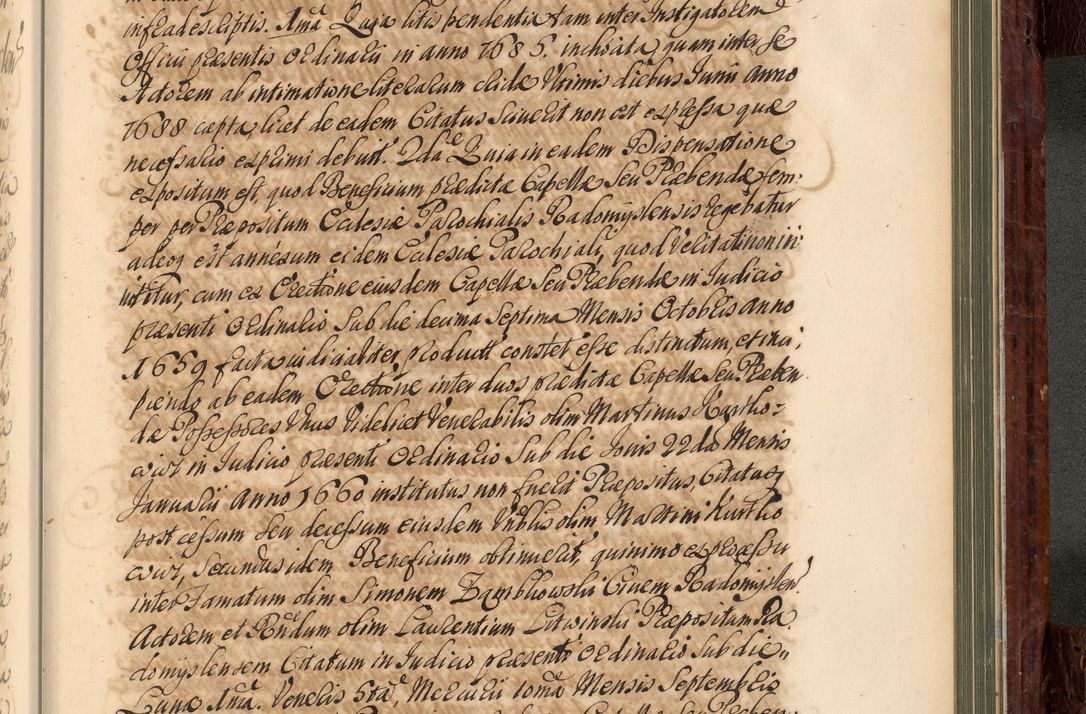 infradescriptis. Ima Quia litis pendentia tam inter Instigatorem
Officii præsentis Ordinarii in anno 1685. inchoata, quam inter se
Actorem ab intimatione literarum elidæ Ultimis diebus Junii anno
1688 capta, licet de eadem Citatus sciverit non est expressa quæ
necessario exprimi debuit. 2da Quia in eadem Dispensatione
expositum est, quod Beneficium prædictæ Capellæ Seu Præbendæ sem-
per per Præpositum Ecclesiæ Parochialis Radomyslensis regebatur
adeoq est annexum eidem Ecclesiæ Parochiali, quod Veritati non in-
nititur, cum ex Erectione eiusdem Capellæ Seu Præbendæ in Judicio
præsenti Ordinario Sub die decima Septima Mensis Octobris anno
1659 facta judicialiter producti constet esse distinctum, et inci,
piendo ab eadem Erectione inter duos prædictæ Capellæ Seu Præben
dæ Possessores Unus Videlicet Venerabilis olim Martinus Kurtho-
wicz in Judicio præsenti Ordinario Sub die Jovis 22da Mensis
Januarii Anno 1660 institutus non fuerit Præpositus, Citatus
post cessum Seu decessum eiusdem Vnblis olim Martini Kurtho
wicz, Secundus idem Beneficium obtinuerit, quinimo ex processu
inter Famatum olim Simonem Zambkowski Civem Radomyslen.
Actorem et Rndum olim Laurentium Litwinski Præpositum Ra
domyslensem Citatum in Judicio præsenti Ordinario Sub die
Lunæ Ima. Veneris 5ta, Mercurii Mensis Septembris